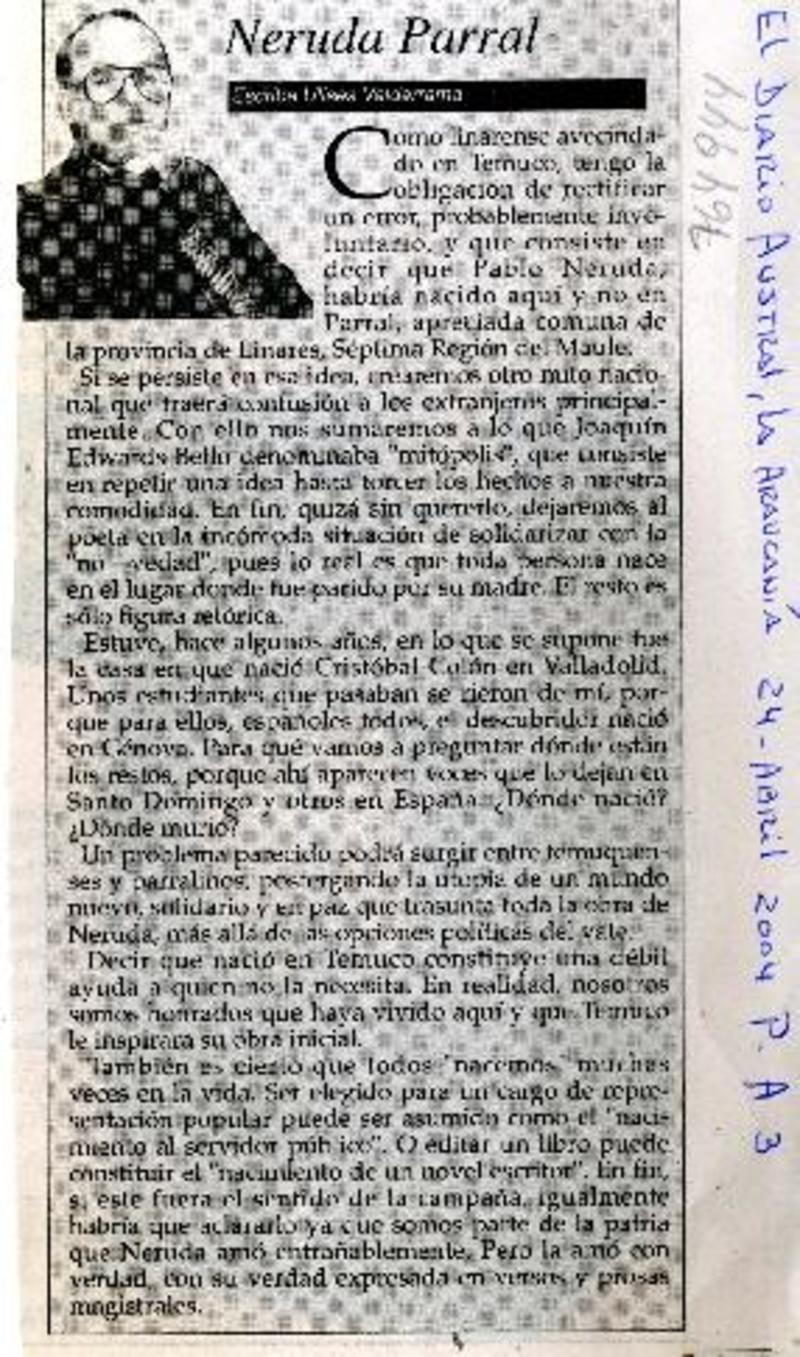 Neruda Parral
Escribe Ulises Valderrama
Como linarense avecinda-
do en Temuco, tengo la
obligación de rectificar
un error, probablemente invo-
luntario, y que consiste en
decir que Pablo Neruda,
habría nacido aquí y no en
Parral, apreciada comuna de
la provincia de Linares, Séptima Región del Maule.
Si se persiste en esa idea, crearemos otro mito nacio-
nal que traerá confusión a los extranjeros principal-
mente. Con ello nos sumaremos a lo que Joaquín
Edwards Bello denominaba "mitópolis", que consiste
en repetir una idea hasta torcer los hechos a nuestra
comodidad. En fin, quizá sin quererlo, dejaremos al
poeta en la incómoda situación de solidarizar con la
"no verdad", pues lo real es que toda persona nace
en el lugar donde fue parido por su madre. El resto es
sólo figura retórica.
Estuve, hace algunos años, en lo que se supone fue
la casa en que nació Cristóbal Colón en Valladolid.
Unos estudiantes que pasaban se rieron de mí, por-
que para ellos, españoles todos, el descubridor nació
en Génova. Para qué vamos a preguntar dónde están
los restos, porque ahí aparecen voces que lo dejan en
Santo Domingo y otros en España. ¿Dónde nació?
¿Dónde murió?
Un problema parecido podrá surgir entre temuquen-
ses y parralinos, postergando la utopía de un mundo
nuevo, solidario y en paz que trasunta toda la obra de
Neruda, más allá de las opciones políticas del vate.
Decir que nació en Temuco constituye una débil
ayuda a quien no la necesita. En realidad, nosotros
somos honrados que haya vivido aquí y que Temuco
le inspirara su obra inicial.
También es cierto que todos "nacemos" muchas
veces en la vida. Ser elegido para un cargo de repre-
sentación popular puede ser asumido como el "naci-
miento al servidor público". O editar un libro puede
constituir el "nacimiento de un novel escritor". En fin,
si este fuera el sentido de la campaña, igualmente
habría que aclararlo ya que somos parte de la patria
que Neruda amó entrañablemente. Pero la amó con
verdad, con su verdad expresada en versos y prosas
magistrales.
El Diario Austral, La Araucanía 24-Abril 2004 P. A 3